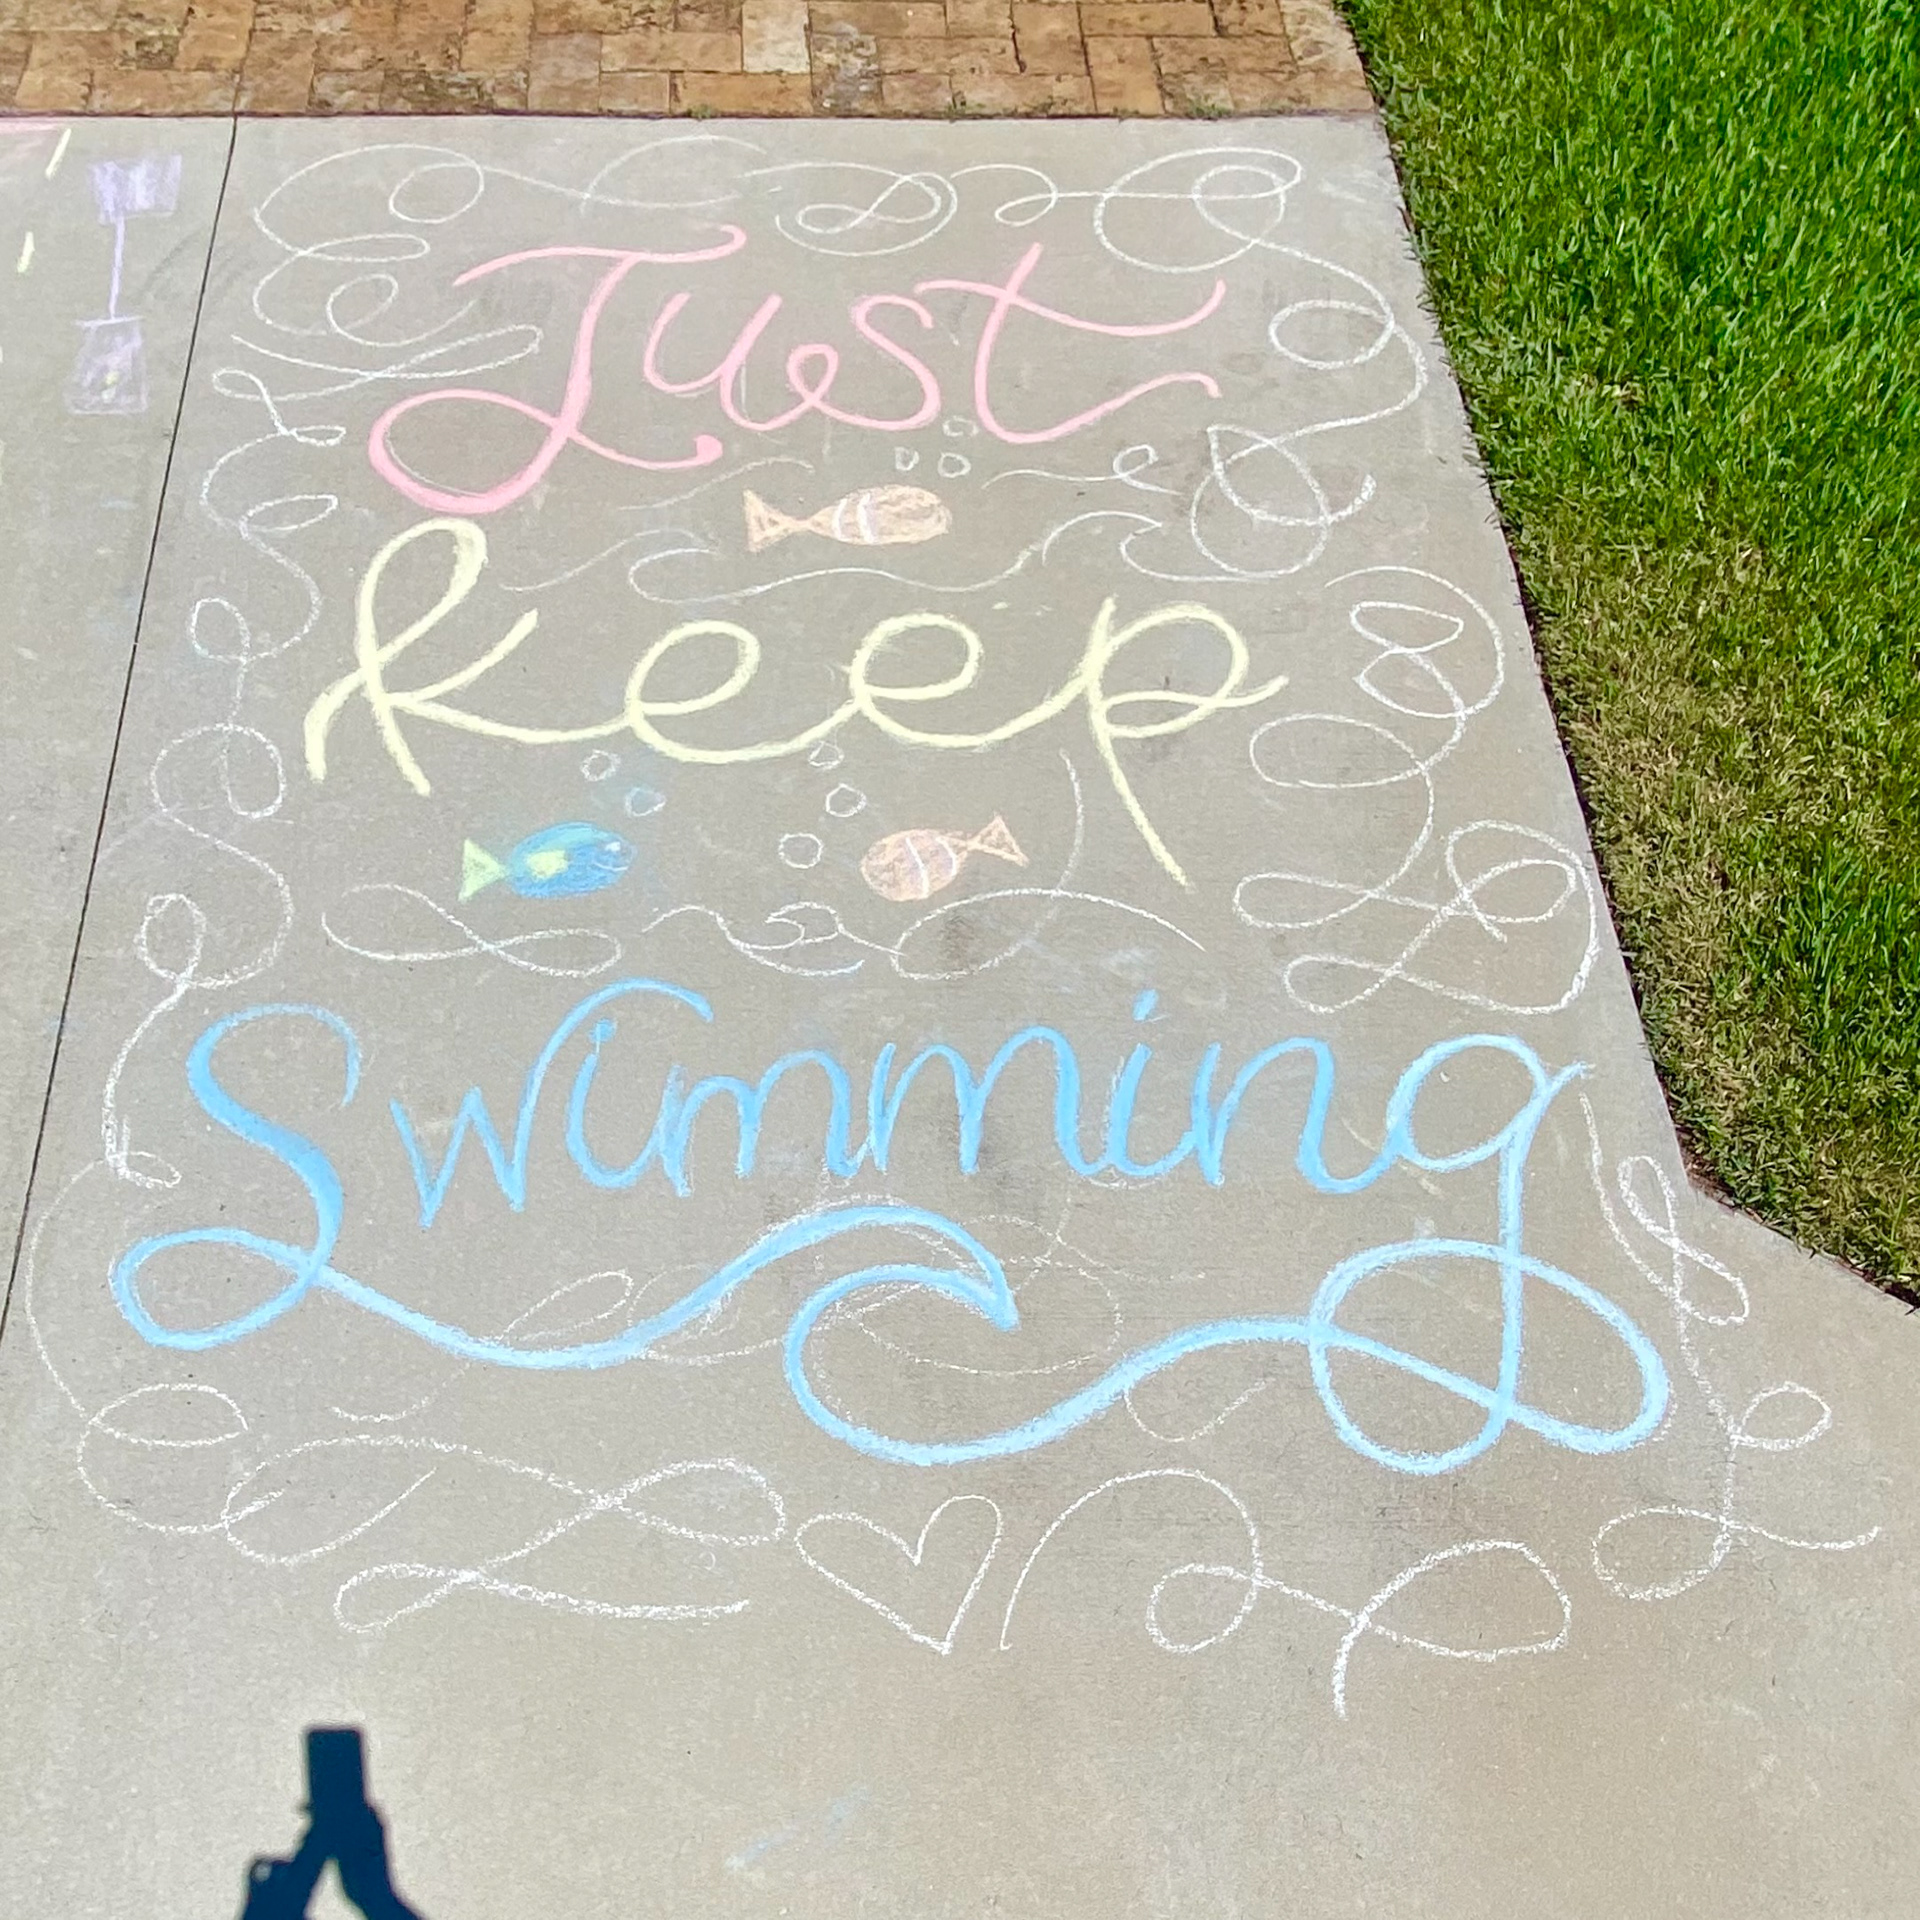 Just
keep
Swimming